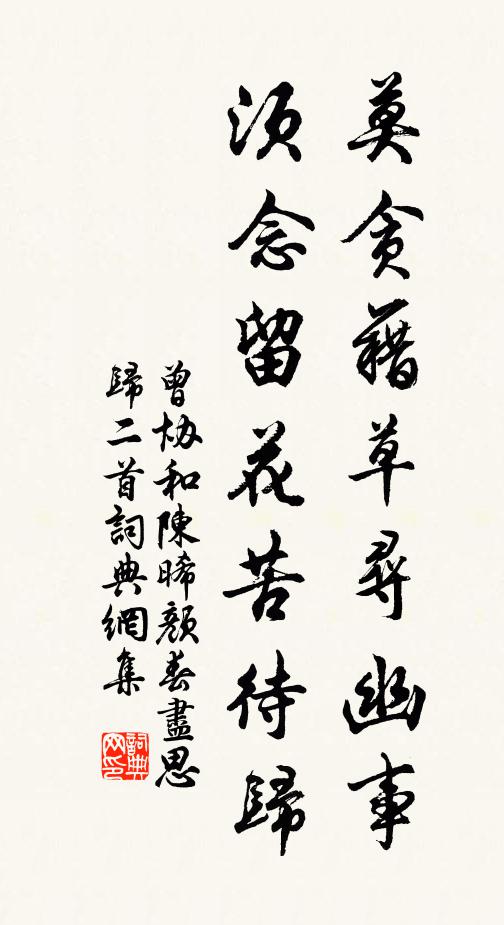 莫貪藉草尋幽事
須念留花苦待歸
曾協和陳晞顏春盡思
歸二首詞典網集
詞典
网印